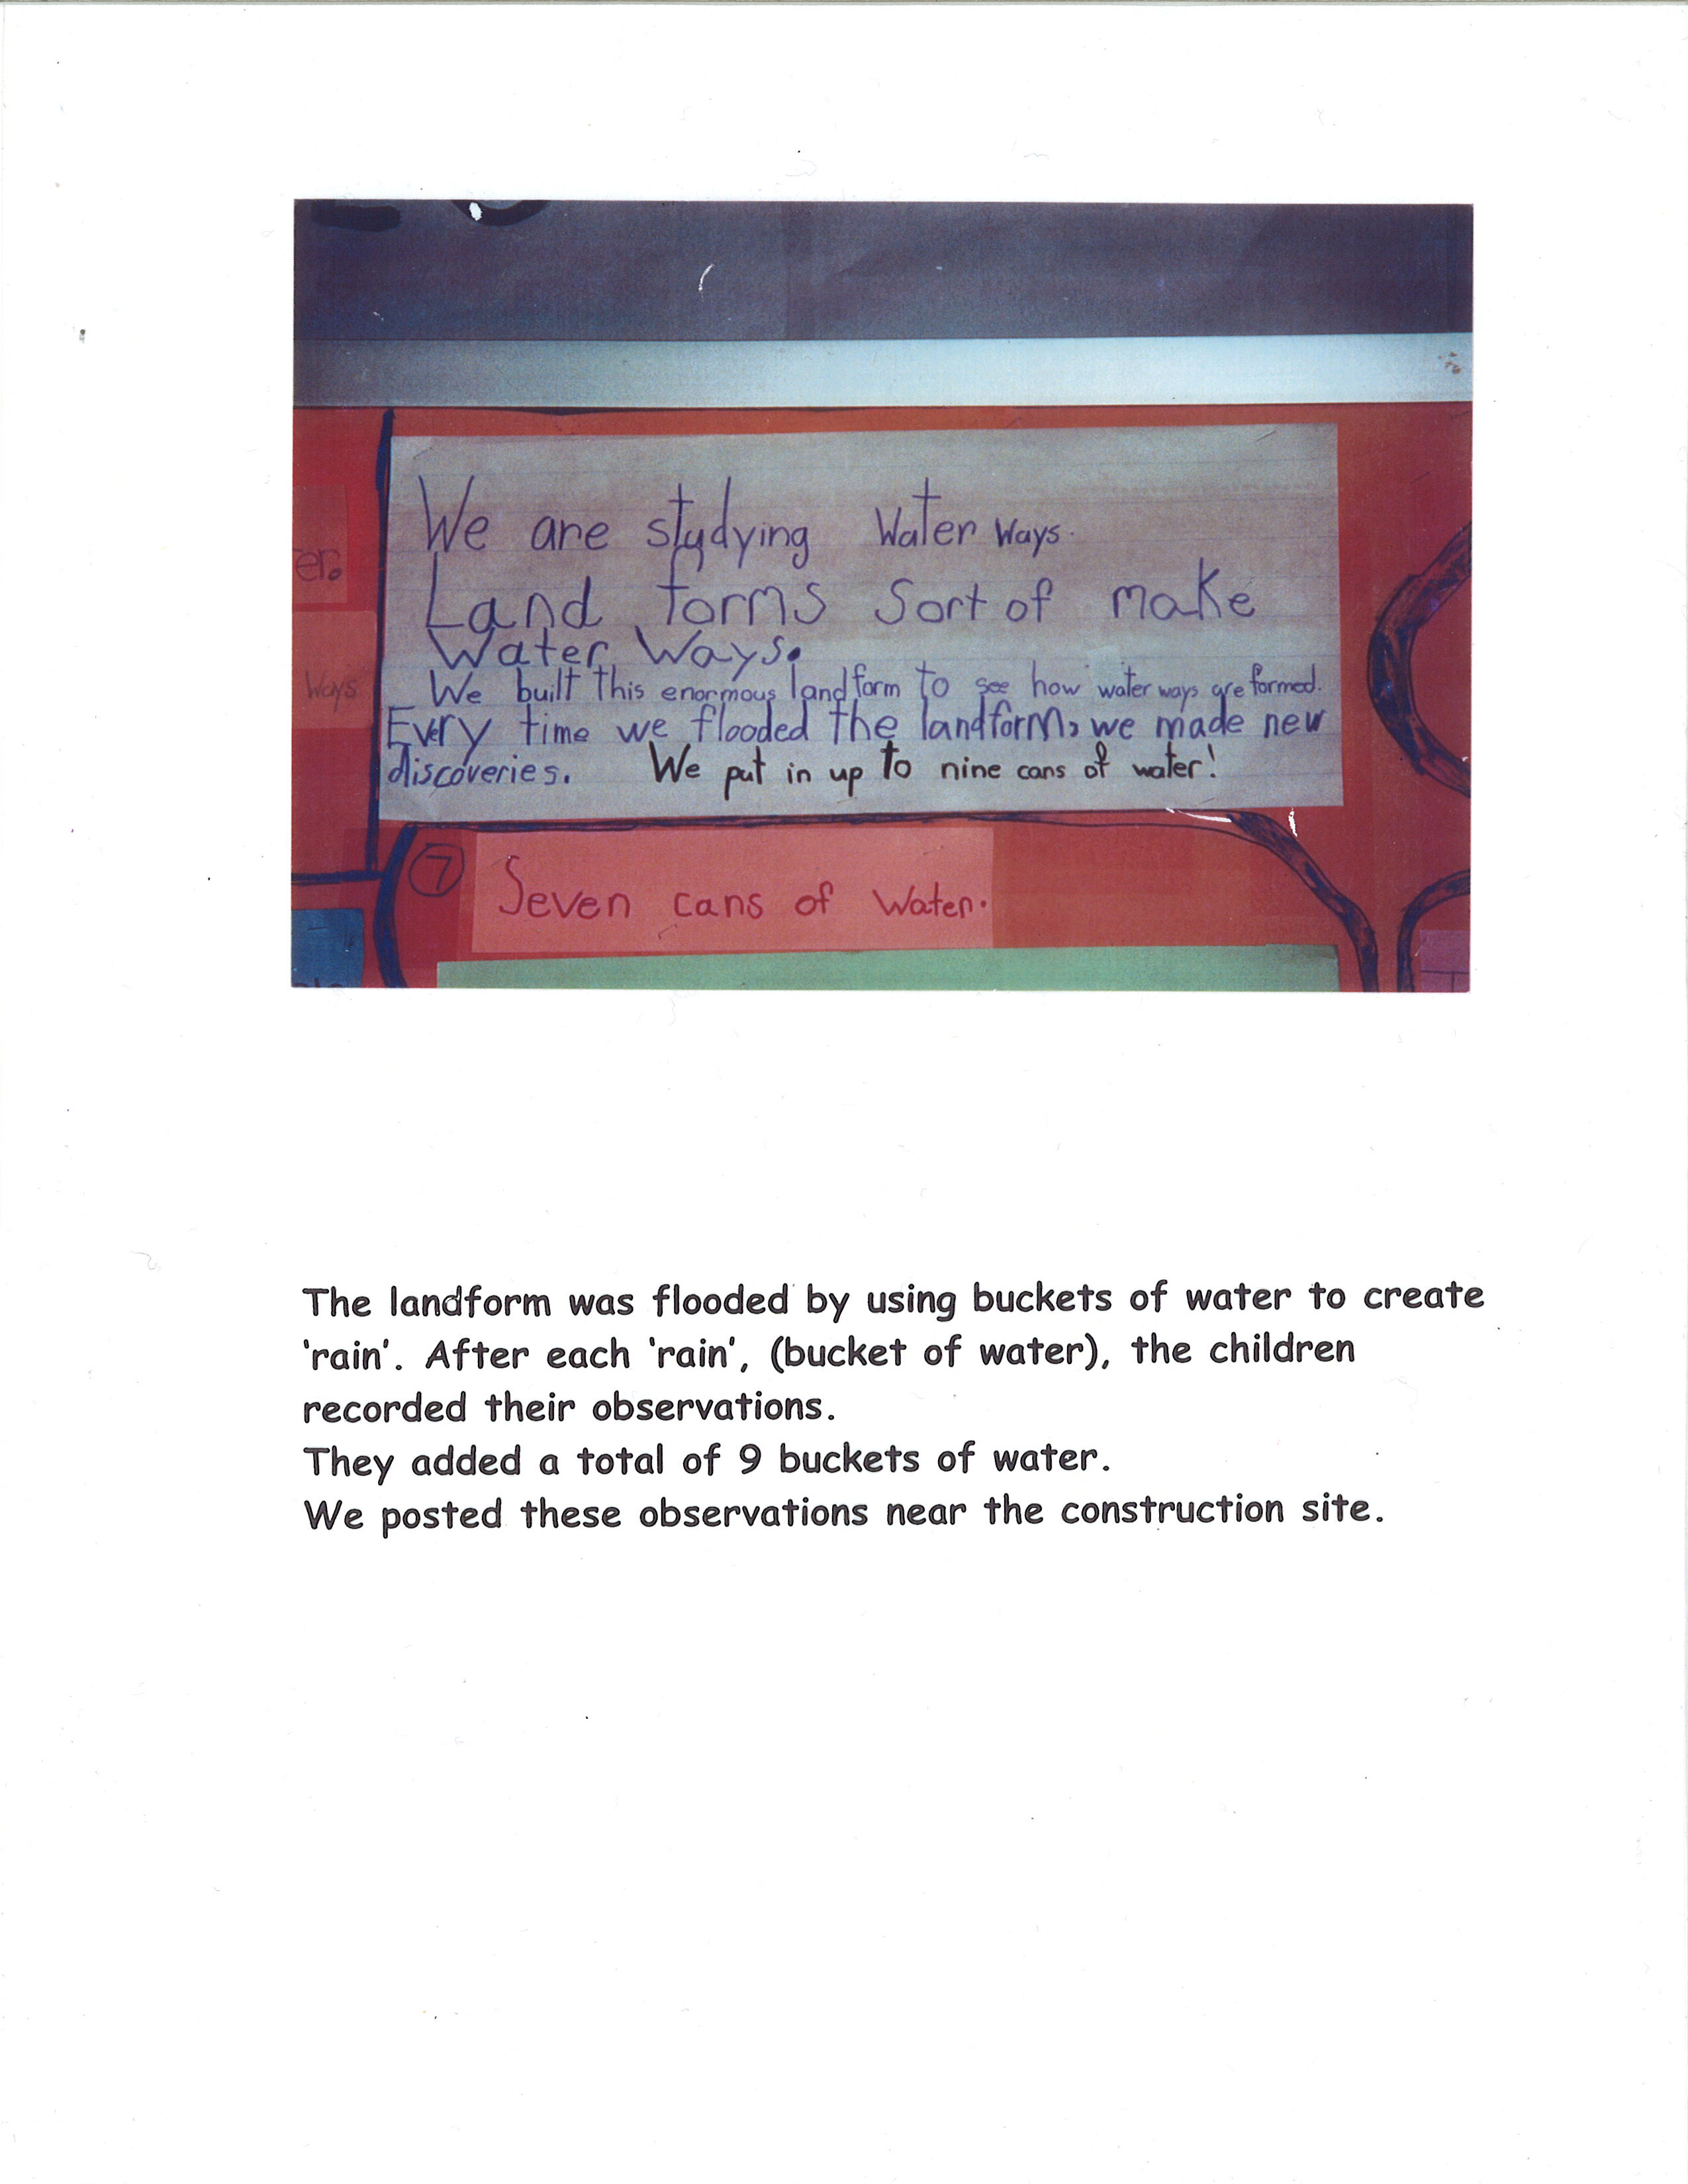 er.
Ways
We are studying Water Ways.
Land forms Sort of make
Water Ways.
We built this enormous landform to see how water ways are formed.
Every time we flooded the landform, we made new
discoveries. We put in up to nine cans of water!
7 Seven cans of Water.
The landform was flooded by using buckets of water to create
'rain'. After each 'rain', (bucket of water), the children
recorded their observations.
They added a total of 9 buckets of water.
We posted these observations near the construction site.